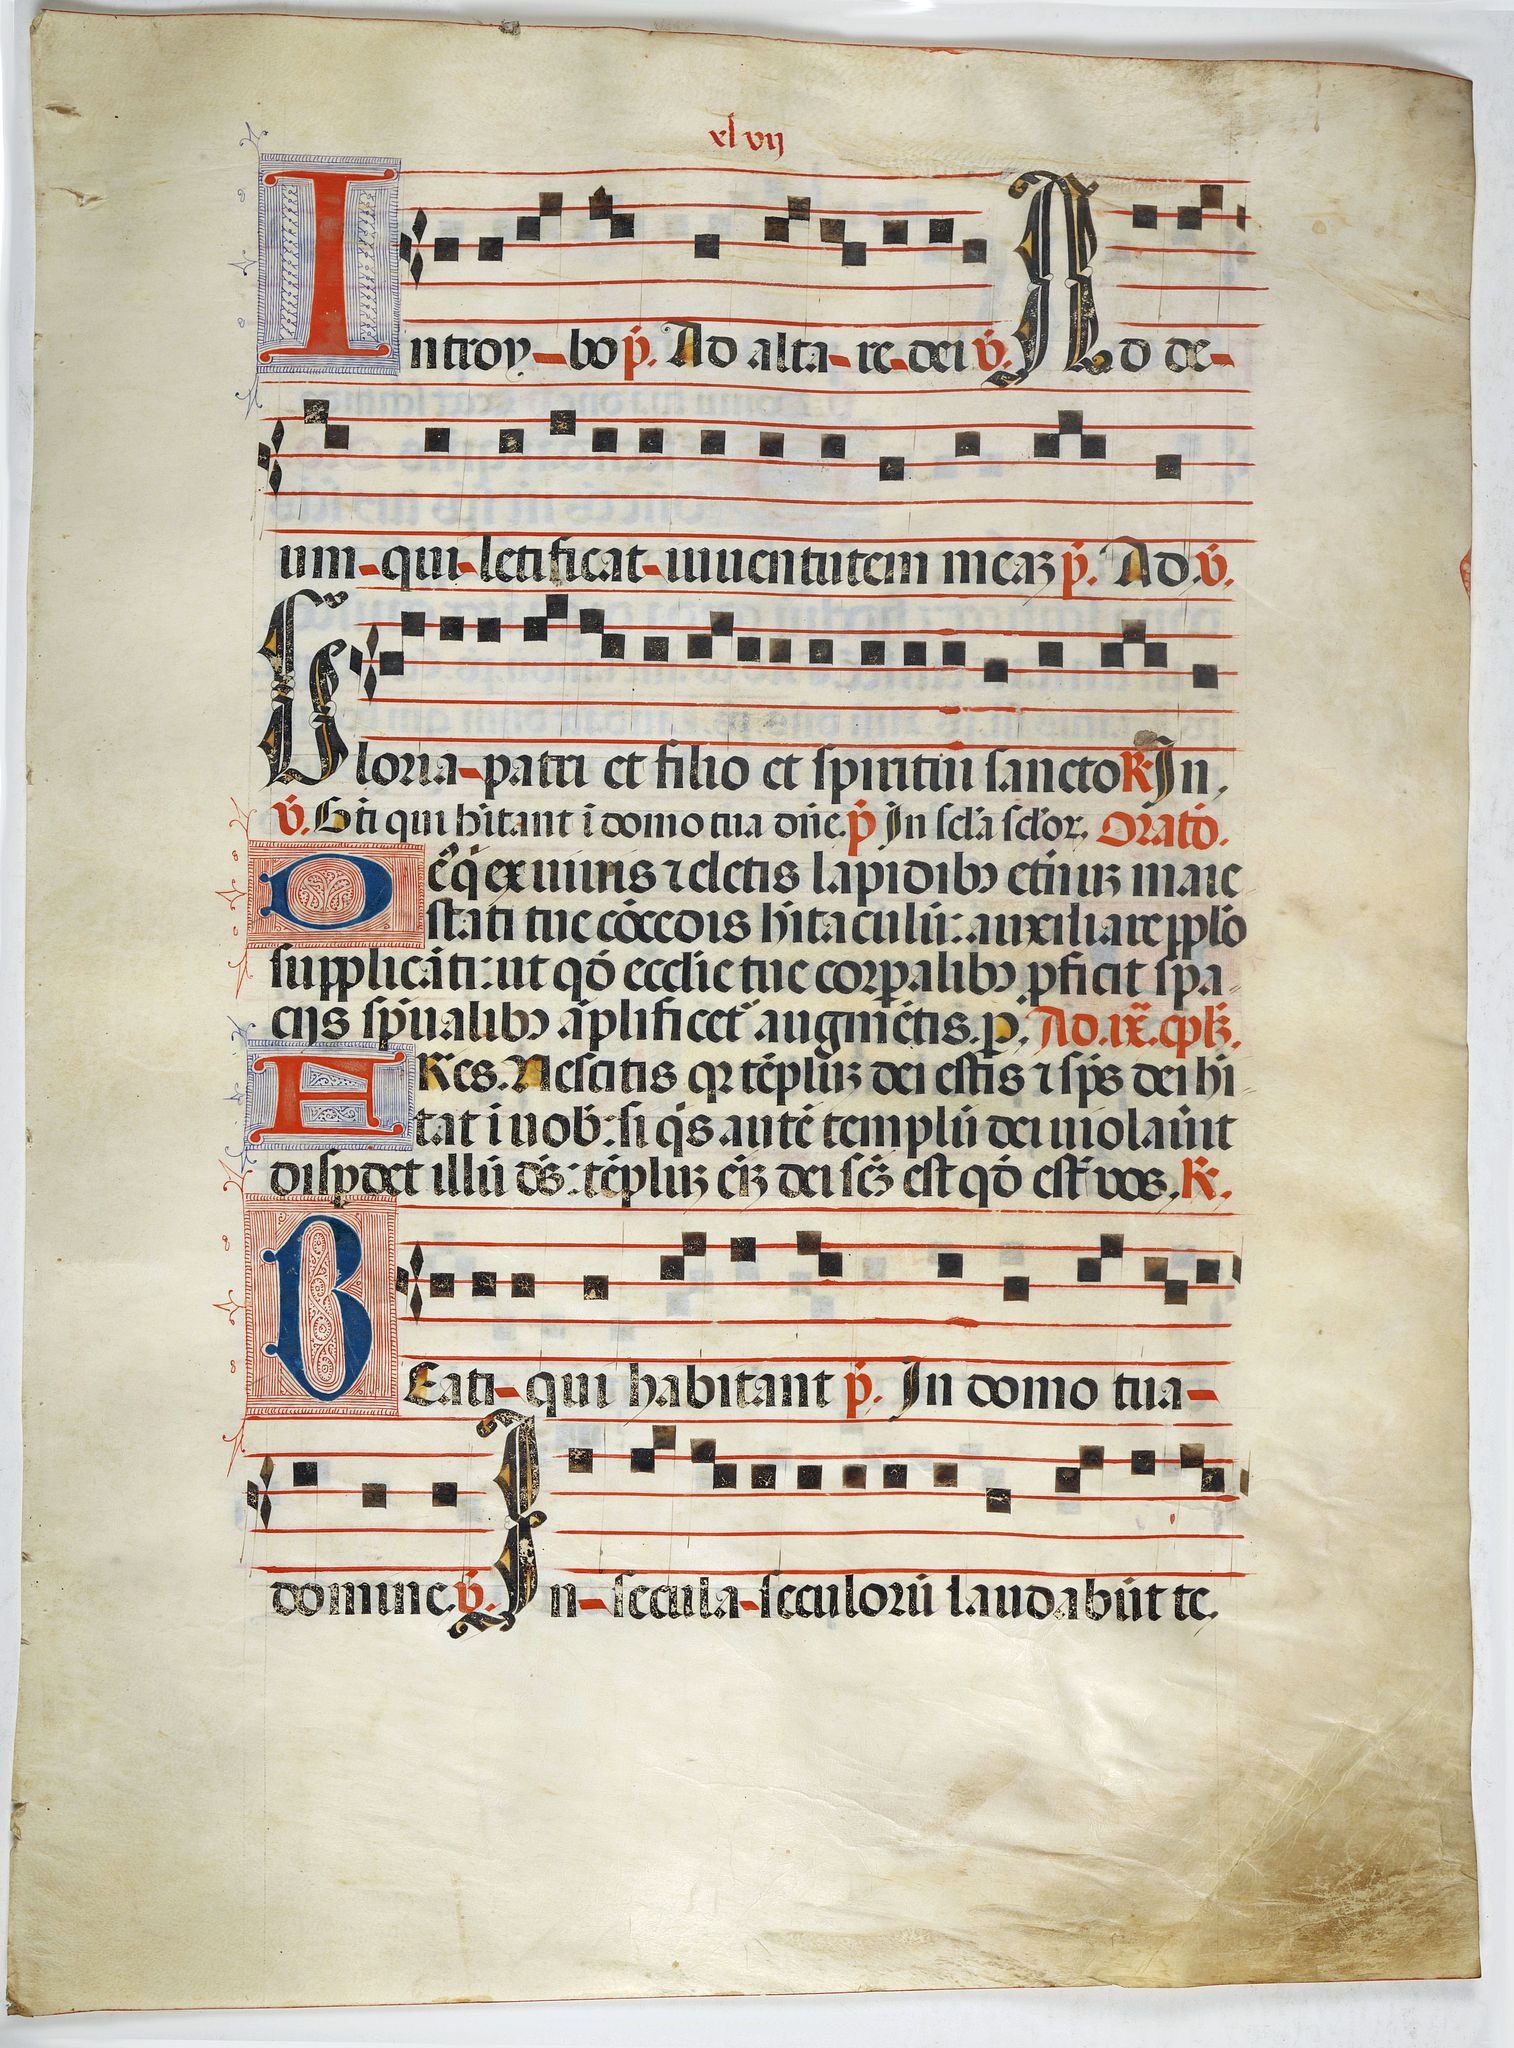 xlvij
Introy-bo p̄. Ad alta-re-dei v̄. Ad de-
um-qui-letificat-iuuentutem meaꝫ p̄. Ad. v̄.
Gloria-patri et filio et spiritui sancto R. In,
v̄. Bt̄i qui hītant ī domo tua dn̄e. p̄ In scl̄a scl̄oꝝ. Oratō.
Dē q̇ ex uiuis ⁊ electis lapidibꝰ et̄nuꝫ maie
stati tue cōdis hītaculū: auxiliare ꝓplō
supplicāti: ut qđ ecclie tue corꝑalibꝰ ꝓficit spa
cijs spūalibꝰ āplificet᷑ augmētis. p. Ad. ix̄. cpl̄ꝫ.
FRēs. Nescitis qꝛ tēpluꝫ dei estis ⁊ sp̄s dei hī
tat ī uob̄: si q̇s autē templū dei uiolau̇it
disꝑdet illū dꝰs: tēpluꝫ ēīꝫ dei scꝫ est qđ estꝭ uos. R.
BEati-qui habitant p̄. In domo tua-
domine. v̄. In-secula-seculorū laudabūt te.